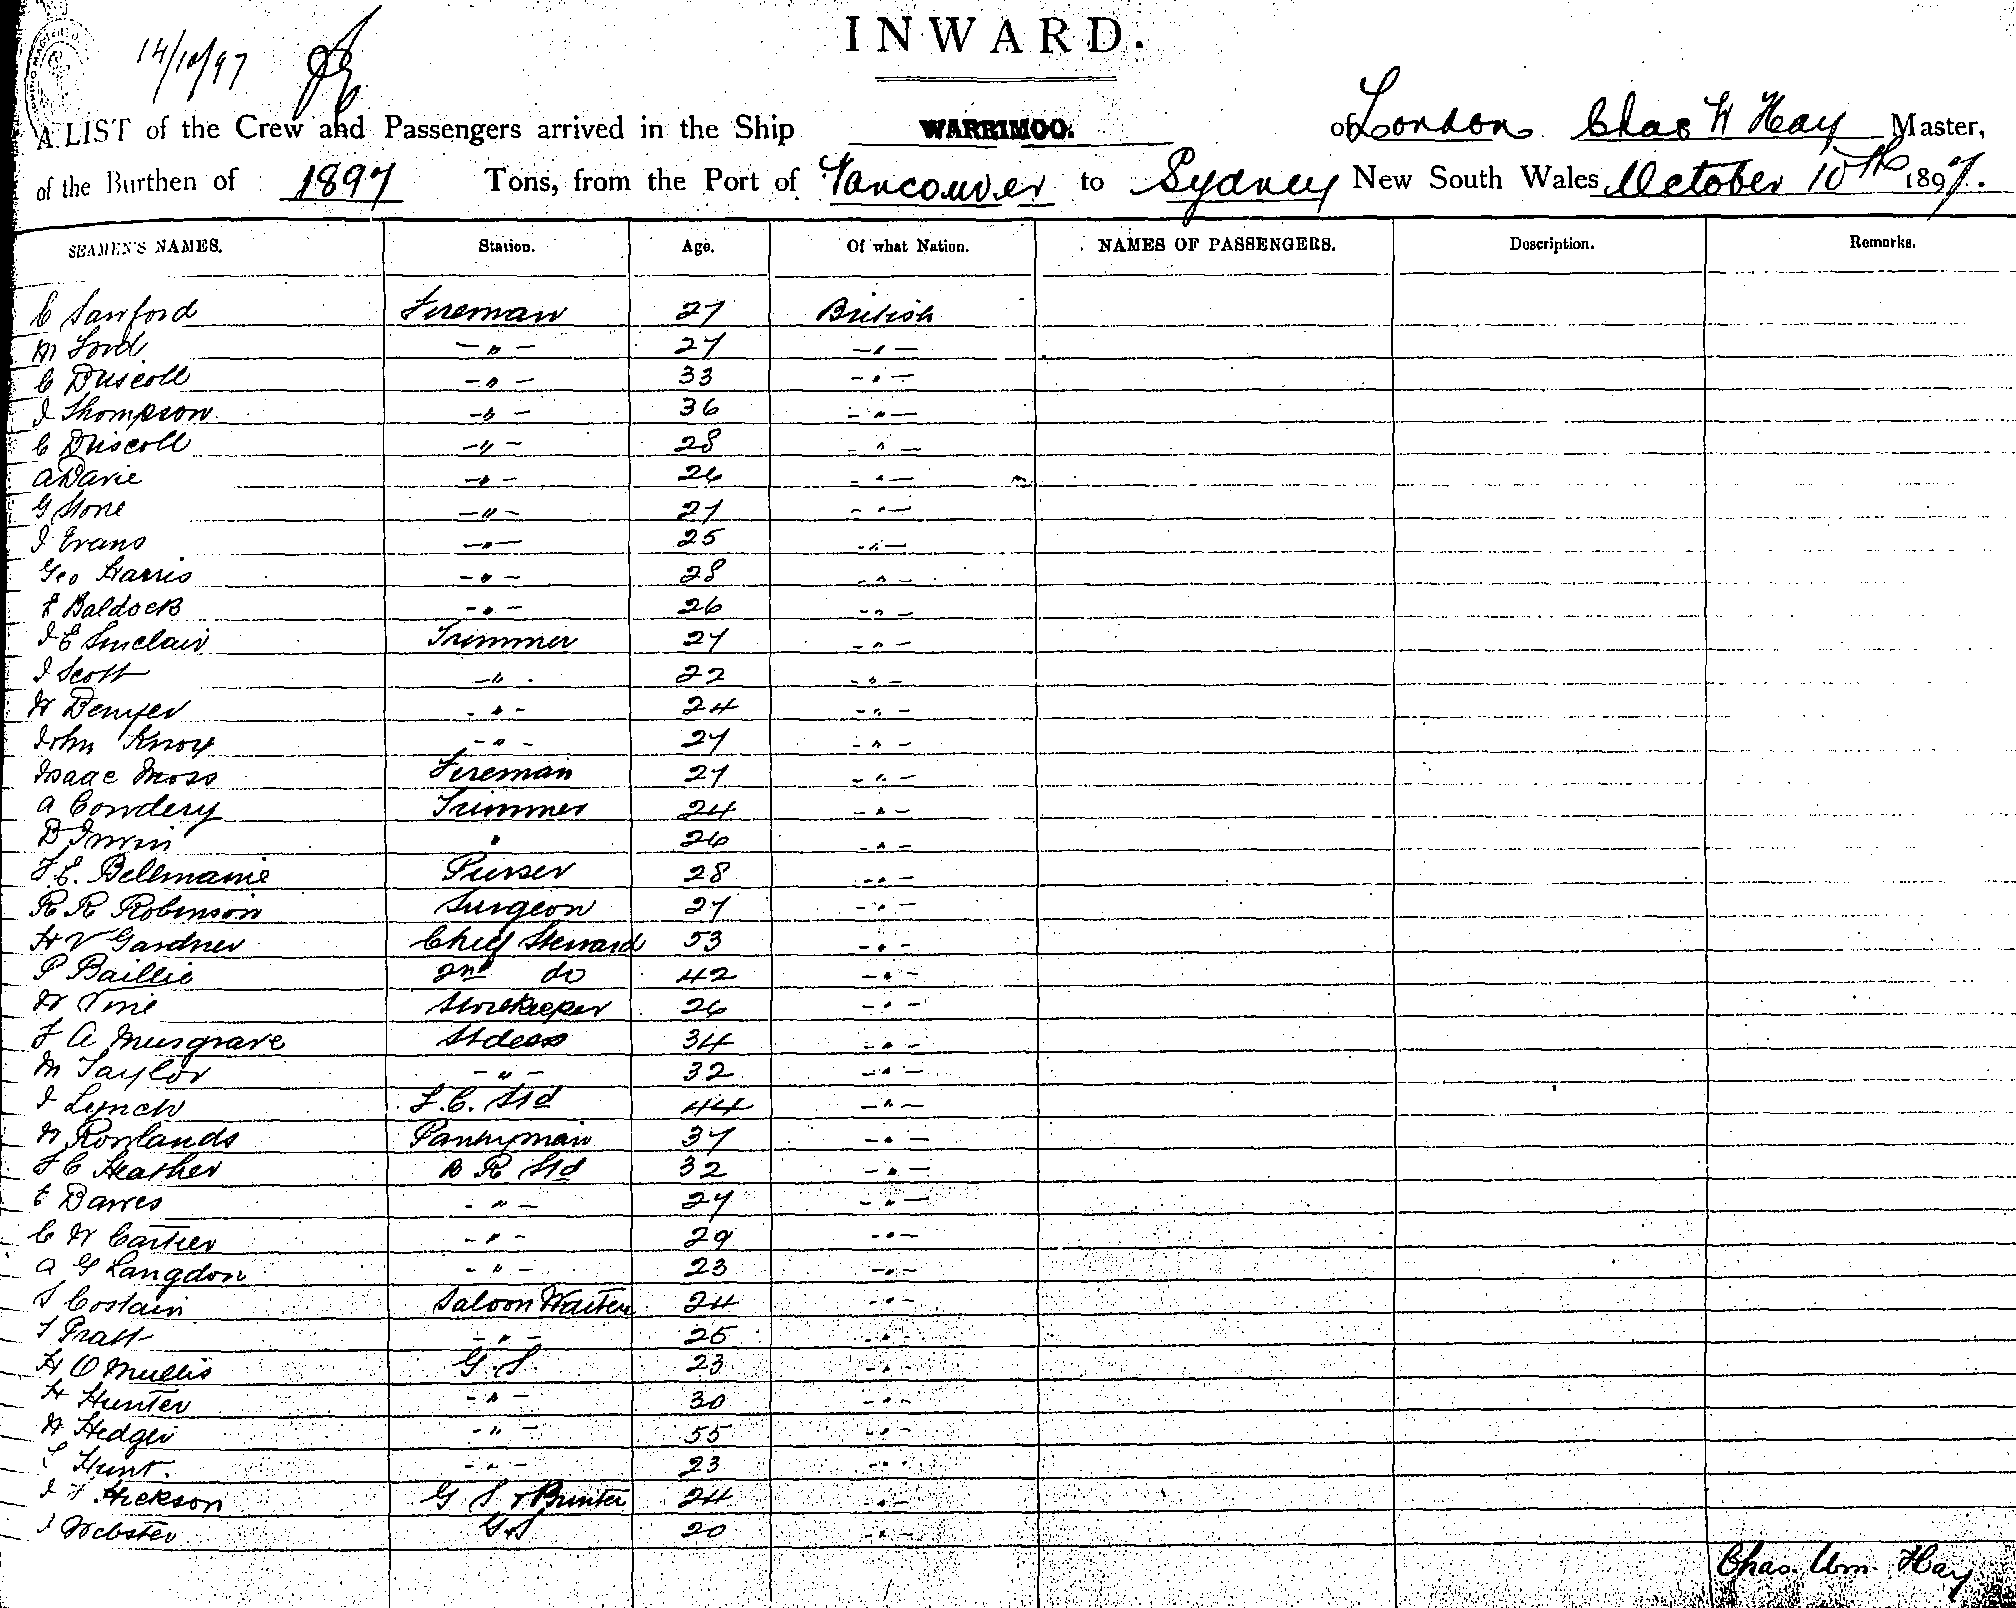 14/10/97
INWARD.
A LIST of the Crew and Passengers arrived in the Ship WARRIMOO. of London Chas W Hay Master,
of the Burthen of 1897 Tons, from the Port of Vancouver to Sydney New South Wales October 10th 1897.
SEAMEN'S NAMES. Station. Age. Of what Nation. NAMES OF PASSENGERS. Description. Remarks.
C Sanford Fireman 27 British
M Ford - " - 27 - " -
C Driscoll - " - 33 - " -
J Thompson - " - 36 - " -
C Driscoll - " - 28 " -
A Davie - " - 26 - " -
G Stone - " - 27 - " -
J Evans - " - 25 - " -
Geo Harris - " - 28 - " -
F Baldock - " - 26 - " -
J E Sinclair Trimmer 27 - " -
J Scott - " - 22 - " -
W Denyer - " - 24 - " -
John Knox - " - 27 - " -
Isaac Moss Fireman 27 - " -
A Cowdery Trimmer 24 - " -
D Irwin " 26 - " -
F. E. Bellmaine Purser 28 - " -
R R Robinson Surgeon 27 - " -
H V Gardner Chief Steward 53 - " -
P Baillie 2nd do 42 - " -
W Vine Storekeeper 26 - " -
F A Musgrave Stdess 34 - " -
M Taylor - " - 32 - " -
J Lynch F.C. Std 44 - " -
W Rowlands Pantryman 37 - " -
F C Heather B R Std 32 - " -
E Dawes - " - 27 - " -
C W Cartier - " - 29 - " -
A G Langdon - " - 23 - " -
S Costain Saloon Waiter 24 - " -
T Pratt - " - 25 - " -
H O Mullis G.S. 23 - " -
H Hunter - " - 30 - " -
W Hedger - " - 55 - " -
Hunt. - " - 23 - " -
J F Hickson G S & Printer 24 - " -
J Webster G.S 20 - " -
Chas. Wm. Hay